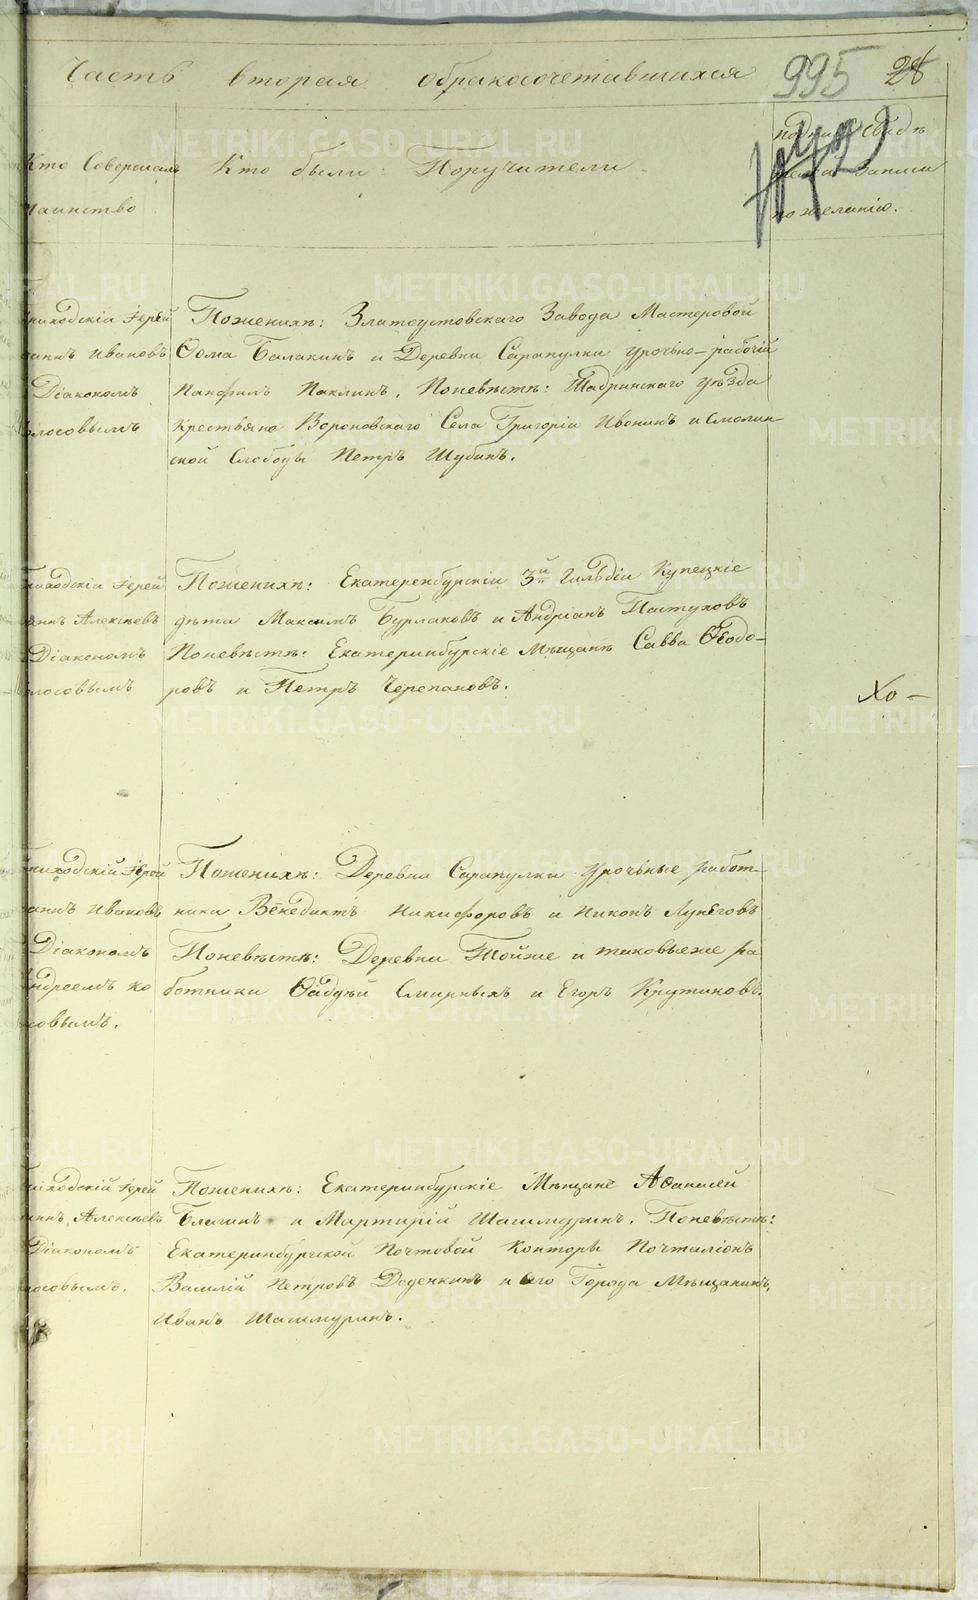 Часть вторая обракосочетавшихся 995 28
Кто Совершалъ
таинство
Кто были Поручители
подпись
записи
по желанію.
Приходскій Іерей
Іоаннъ Ивановъ
Діакономъ
Колосовымъ
Поженихѣ: Златоустовскаго Завода Мастеровой
Ѳома Балакинъ и Деревни Сарапулки урочьно-рабочій
Панфилъ Паклинъ. Поневѣстѣ: Шадринскаго уѣзда
Крестьяне Вороновскаго Села Григорій Ивонинъ и Смолин
ской Слободы Петръ Шубинъ.
Приходскій Іерей
Іоаннъ Алексѣевъ
Діакономъ
Колосовымъ
Поженихѣ: Екатеренбурскіи 3й Гильдіи Купецкіе
дѣти Максимъ Бурлаковъ и Андріанъ Пастуховъ
Поневѣстѣ: Екатеринбурскіе Мѣщанѣ Савва Ѳеодо-
ровъ и Петръ Черепановъ.
Приходскій Іерей
Іоаннъ Ивановъ
Діакономъ
Андреемъ Ко
лосовымъ.
Поженихѣ: Деревни Сарапулки урочьные работ-
ники Венедиктъ Никифоровъ и Никонъ Лунеговъ
Поневѣстѣ: Деревни Тойже и таковыеже ра
ботники Ѳадѣй Смирныхъ и Егоръ Крутиковъ.
Приходскій Іерей
Іоаннъ Алексѣевъ
Діакономъ
Колосовымъ.
Поженихѣ: Екатеринбурскіе Мѣщане Аѳанасей
Блигинъ и Мартирій Шашмуринъ. Поневѣстѣ:
Екатеринбургской Почтовой Конторы Почталіонъ
Василій Петровъ Деденкинъ и его Города Мѣщанинъ,
Иванъ Шашмуринъ.
METRIKI.GASO-URAL.RU